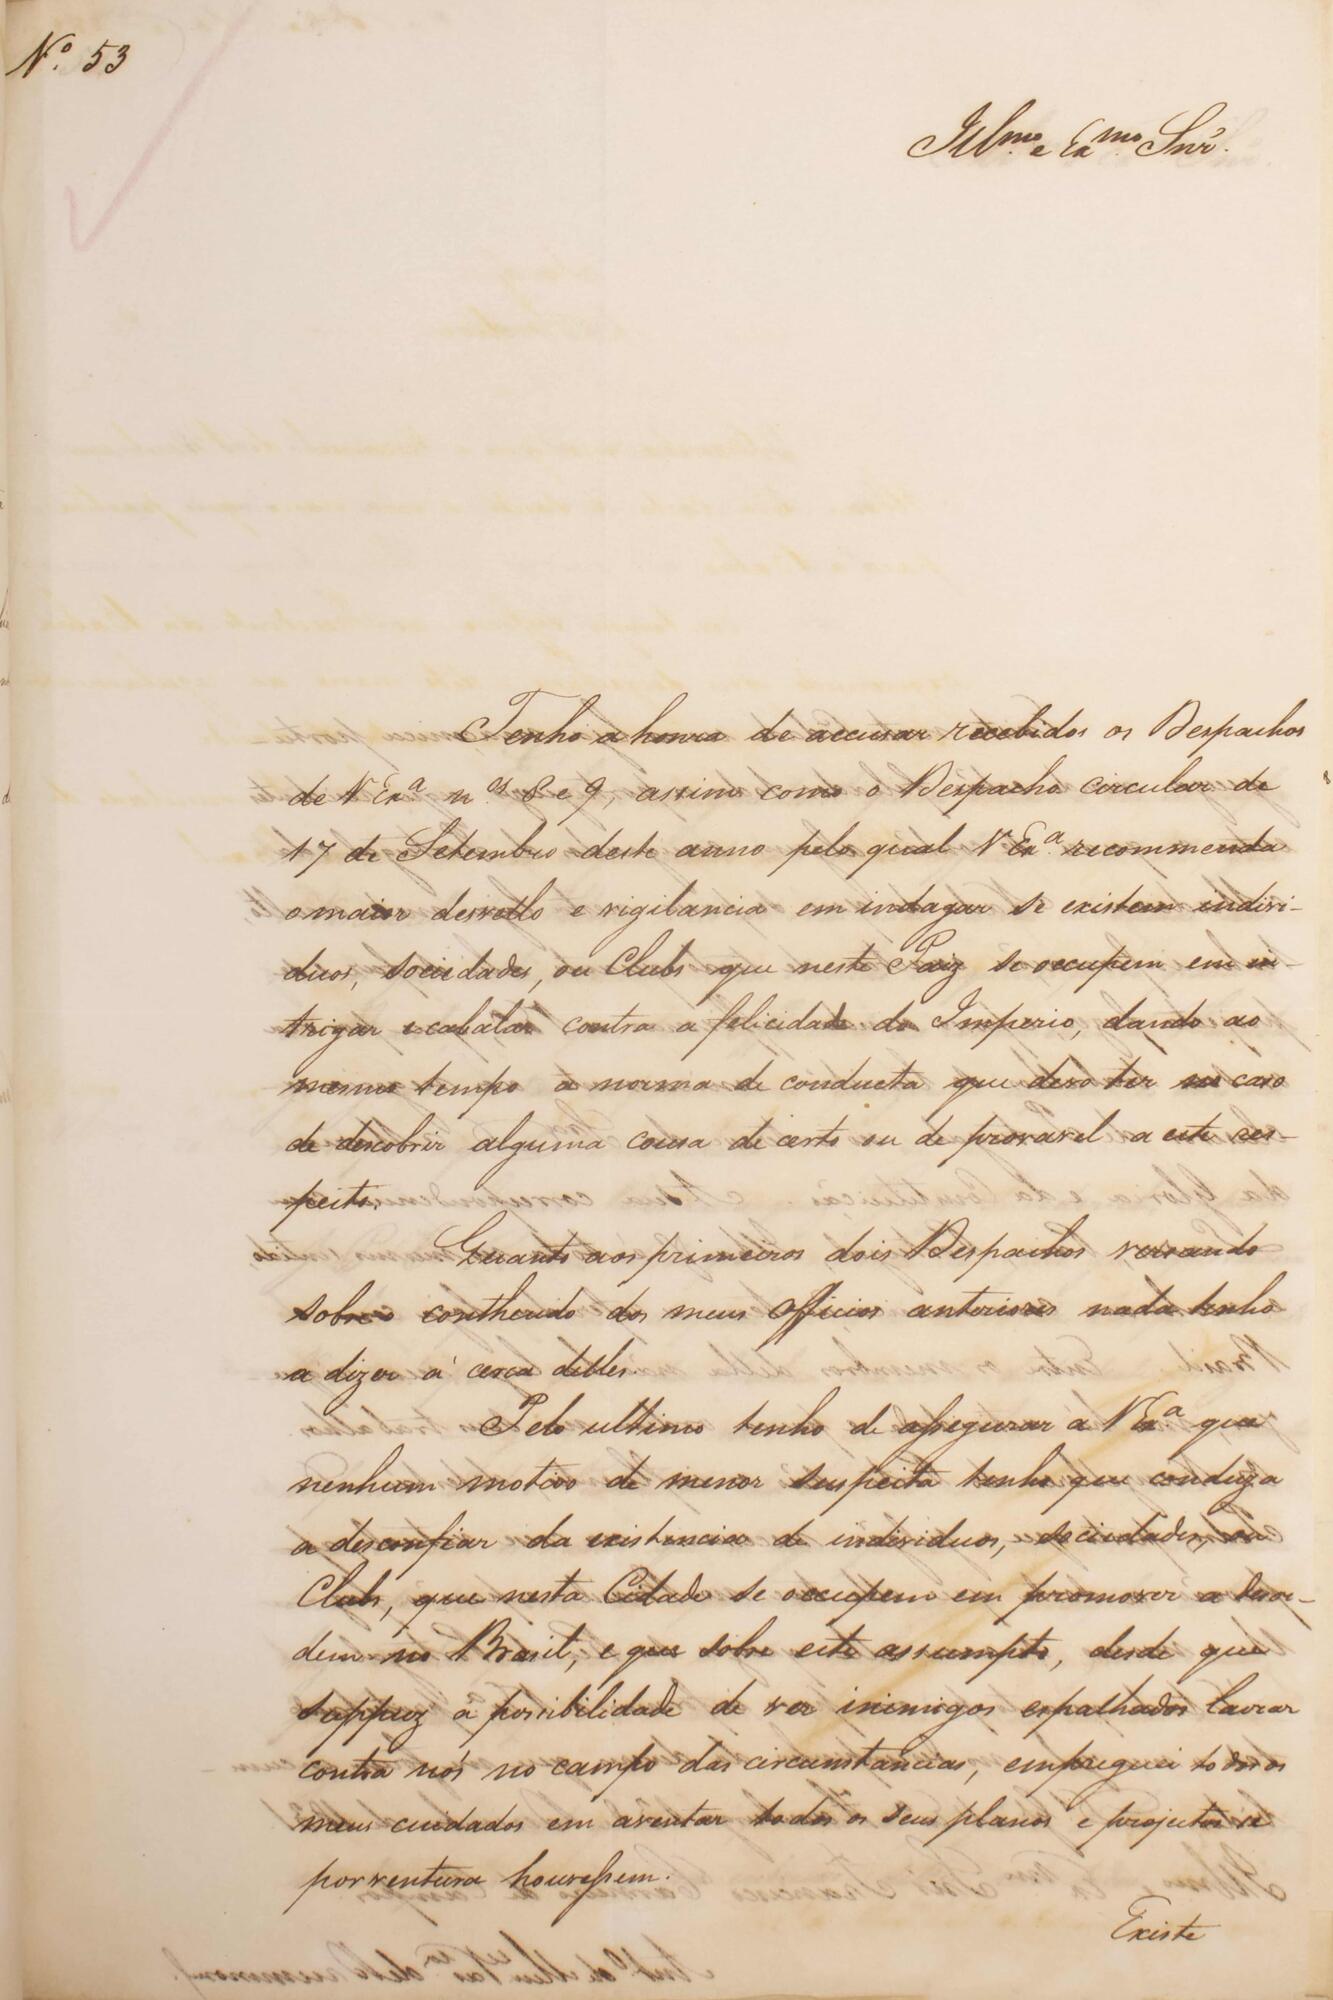 Nº. 53
Illmo. e Exmo. Snr.
Tenho a honra de accusar recebidos os Despachos
de V Exª nos 8 e 9, assim como o Despacho circular de
17 de Setembro deste anno pelo qual V Exª. recommenda
o maior desvello e vigilancia em indagar se existem indivi-
duos, sociedades, ou Clubs que neste Paiz se occupem em in-
trigar e cabalar contra a felicidade do Imperio, dando ao
mesmo tempo a norma de conducta que devo ter no caso
de descobrir alguma cousa de certo ou de provavel a este res-
peito.
Quanto aos primeiros dois Despachos, versando
sobre o contheudo dos meus Officios anteriores nada tenho
a dizer á cerca delles.
Pelo ultimo tenho de assegurar a V Exª que
nenhum motivo de menor suspeita tenho que conduza
a desconfiar da existencia de individuos, sociedades, ou
Clubs, que nesta Cidade se occupem em promover a desor-
dem no Brasil, e que sobre este assumpto, desde que
suppuz a possibilidade de ver inimigos espalhados lavrar
contra nós no campo das circumstancias, empreguei todos os
meus cuidados em aventar todos os seus planos e projectos se
porventura houvessem.
Existe